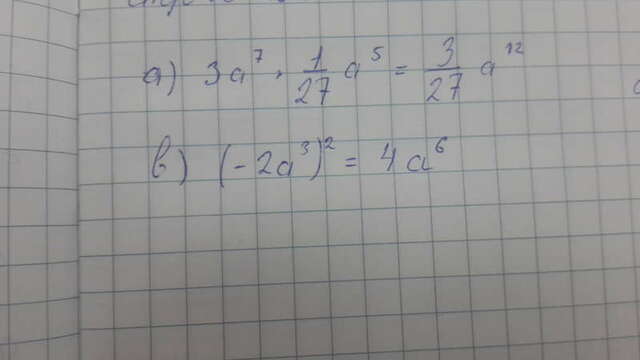 а) 3a⁷ · 1/27 a⁵ = 3/27 a¹²
в) (-2a³)² = 4a⁶